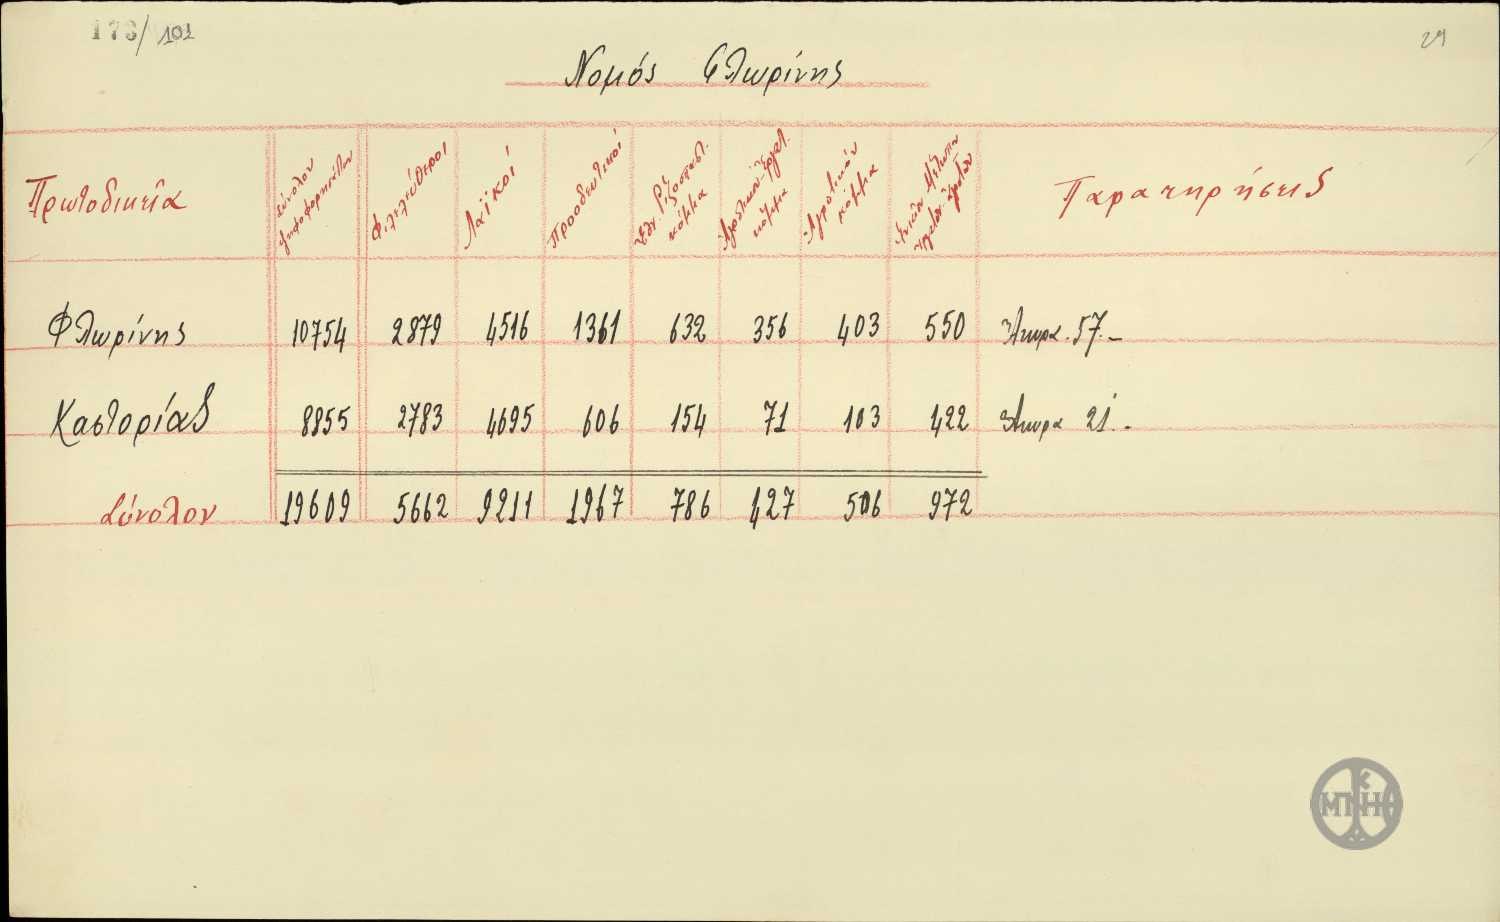 173/101
29
Νομός Φλωρίνης
Πρωτοδικεῖα Σύνολον ψηφοφορησάντων Φιλελεύθεροι Λαϊκοί Προοδευτικοί Ἐθν. Ριζοσπαστ. κόμμα Ἀγροτικὸν-Ἐργατ. κόμμα Ἀγροτικόν κόμμα Ἑνιαῖον Μέτωπον Ἐργατῶν-Ἀγροτῶν Παρατηρήσεις
Φλωρίνης 10754 2879 4516 1361 632 356 403 550 Ἄκυρα. 57.-
Καστορίας 8855 2783 4695 606 154 71 103 422 Ἄκυρα 21.-
Σύνολον 19609 5662 9211 1967 786 427 506 972
ΜΠΝΗ